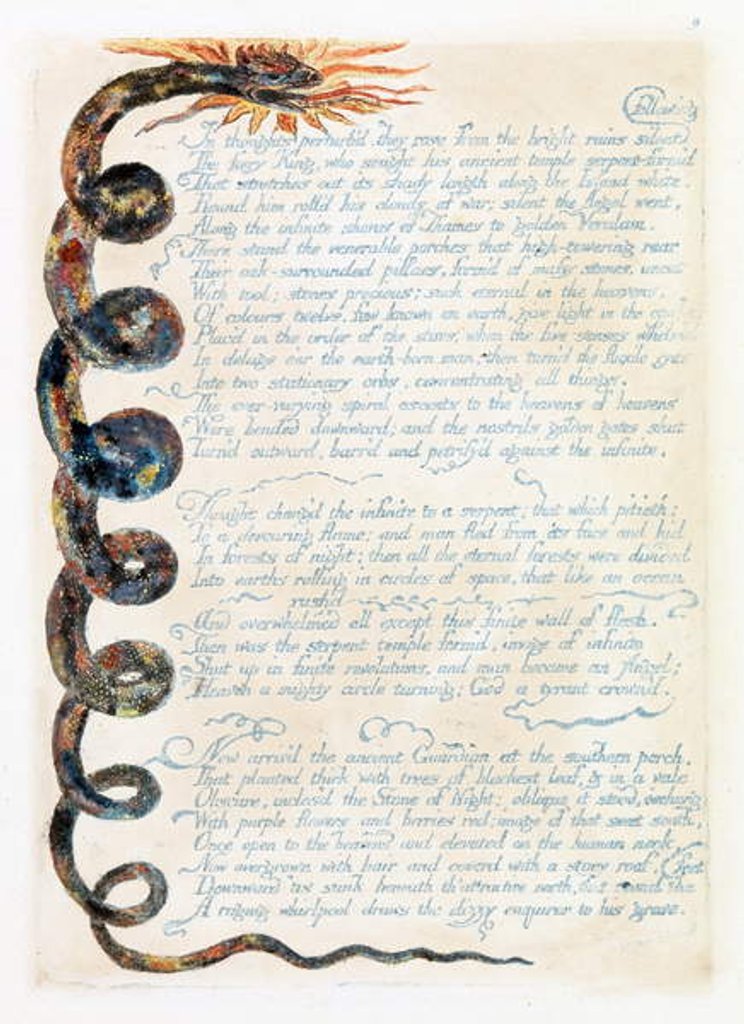 following
In thoughts perturb'd they rose from the bright ruins silent
The fiery King, who sought his ancient temple serpent-form'd
That stretches out its shady length along the Island white.
Round him roll'd his clouds of war; silent the Angel went,
Along the infinite shores of Thames to golden Verulam.
There stand the venerable porches that high-towering rear
Their oak-surrounded pillars, form'd of massy stones, uncut
With tool; stones precious; such eternal in the heavens,
Of colours twelve, few known on earth, give light in the
Plac'd in the order of the stars, when the five senses whelm'd
In deluge o'er the earth-born man; then turn'd the fluxile eyes
Into two stationary orbs, concentrating all things.
The ever-varying spiral ascents to the heavens of heavens
Were bended downward; and the nostrils golden gates shut
Turn'd outward, barr'd and petrify'd against the infinite.
Thought chang'd the infinite to a serpent; that which pitieth:
To a devouring flame; and man fled from its face and hid
In forests of night; then all the eternal forests were divided
Into earths rolling in circles of space, that like an ocean
rush'd
And overwhelmed all except this finite wall of flesh.
Then was the serpent temple form'd, image of infinite
Shut up in finite revolutions, and man became an Angel;
Heaven a mighty circle turning; God a tyrant crown'd.
Now arriv'd the ancient Guardian at the southern porch,
That planted thick with trees of blackest leaf, & in a vale
Obscure, inclos'd the Stone of Night; oblique it stood, o'erhung
With purple flowers and berries red; image of that sweet south,
Once open to the heavens and elevated on the human neck,
Now overgrown with hair and cover'd with a stony roof,
Downward 'tis sunk beneath th' attractive north, that round the feet
A raging whirlpool draws the dizzy enquirer to his grave.